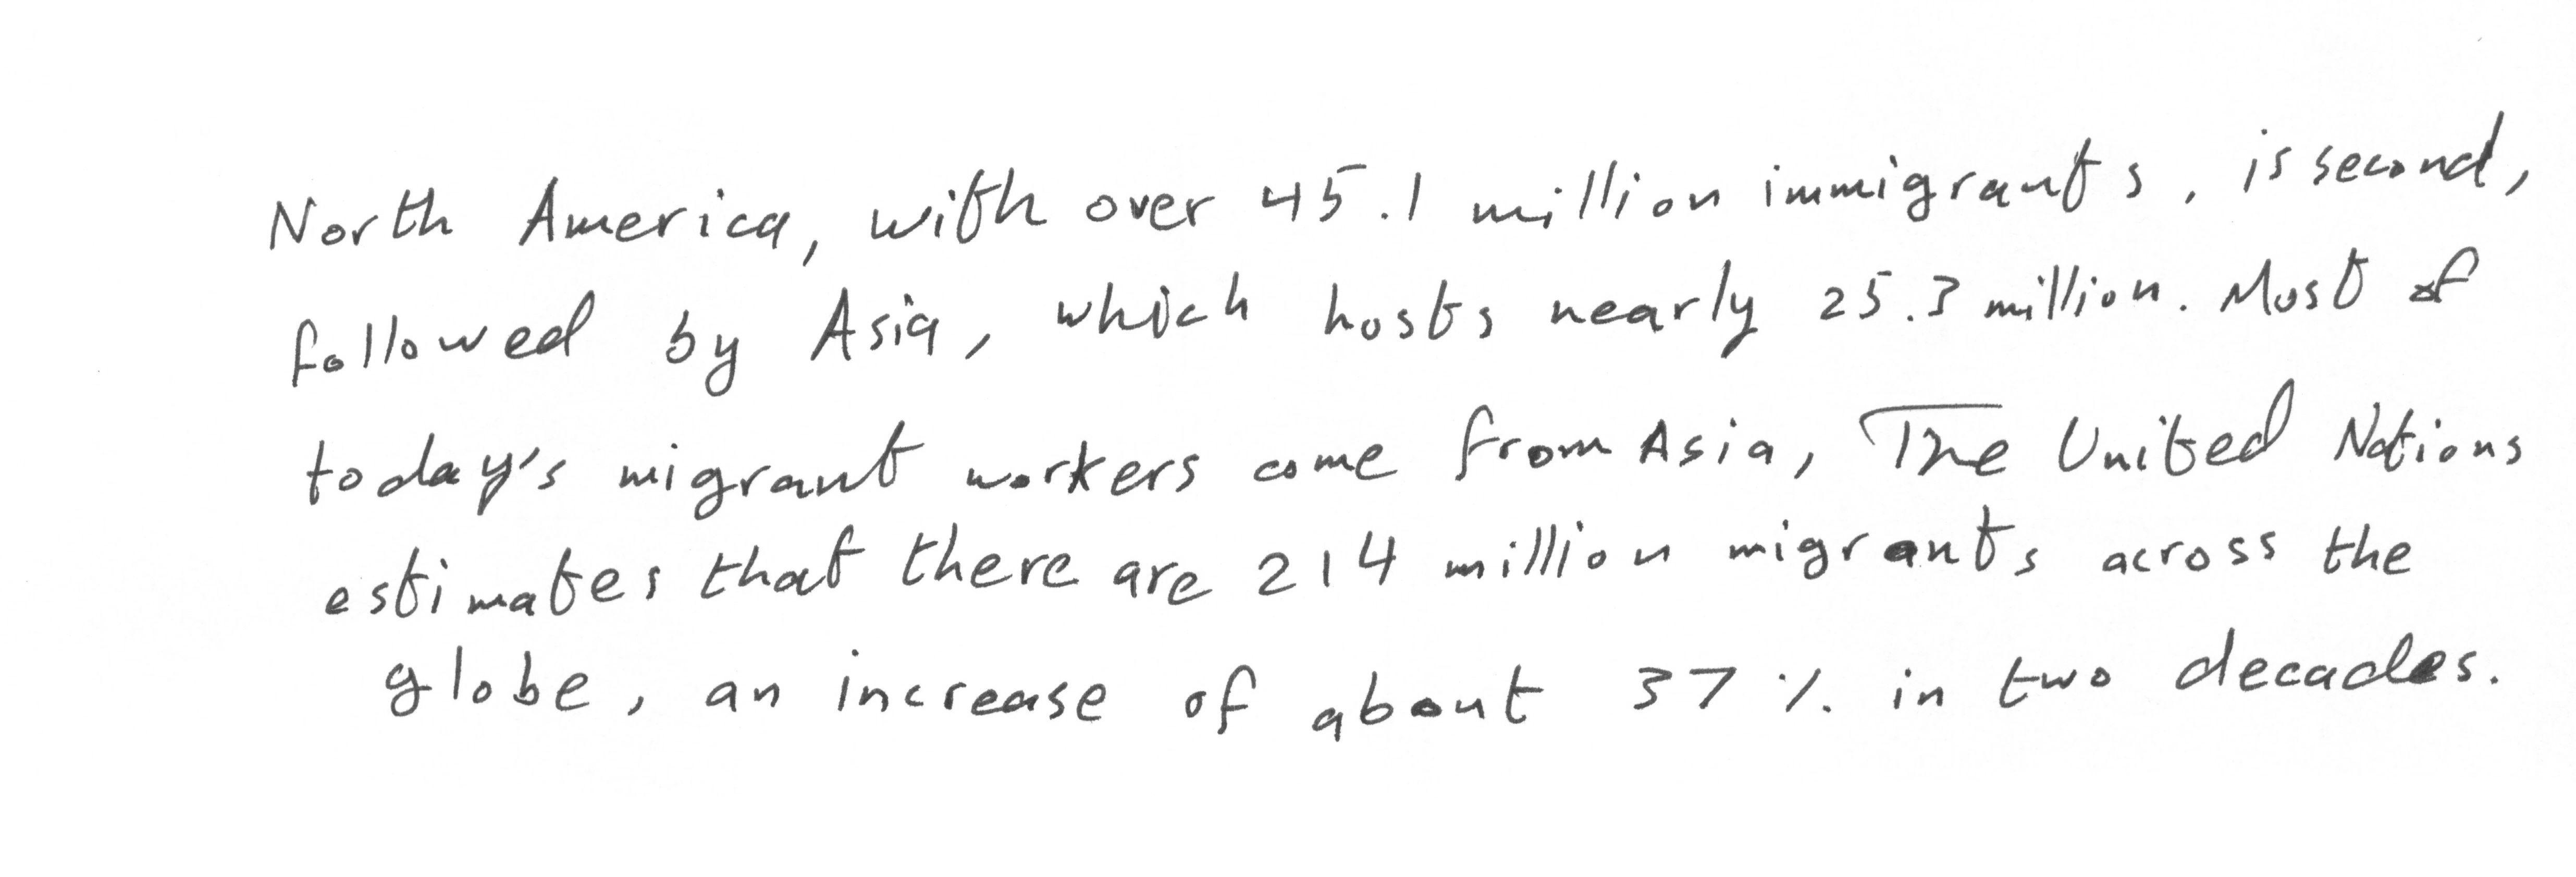 North America, with over 45.1 million immigrants, is second,
followed by Asia, which hosts nearly 25.3 million. Most of
today's migrant workers come from Asia, The United Nations
estimates that there are 214 million migrants across the
globe, an increase of about 37 % in two decades.